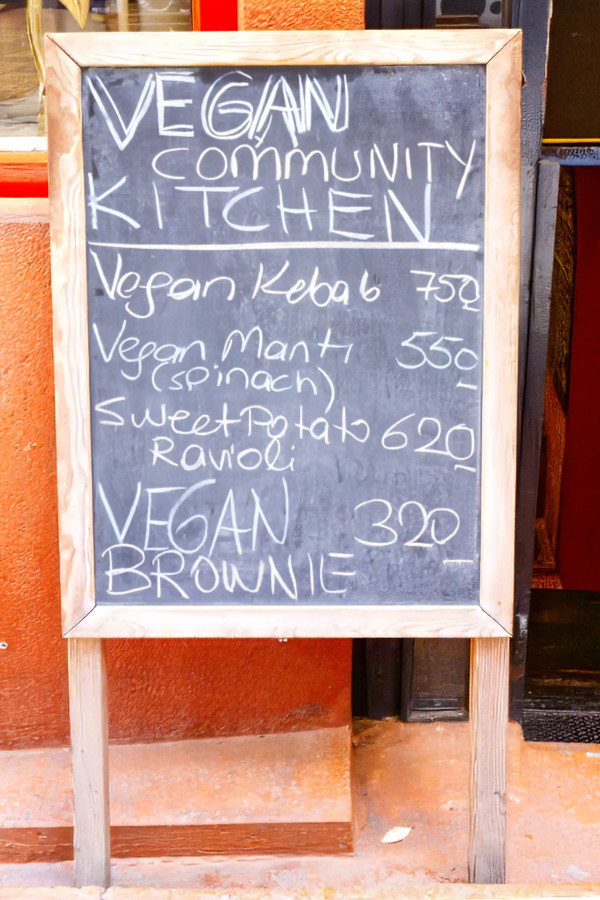 VEGAN
COMMUNITY
KITCHEN
Vegan Kebab 750
Vegan Mantı 550
(spinach)
Sweet Potato 620
Ravioli
VEGAN 320
BROWNIE